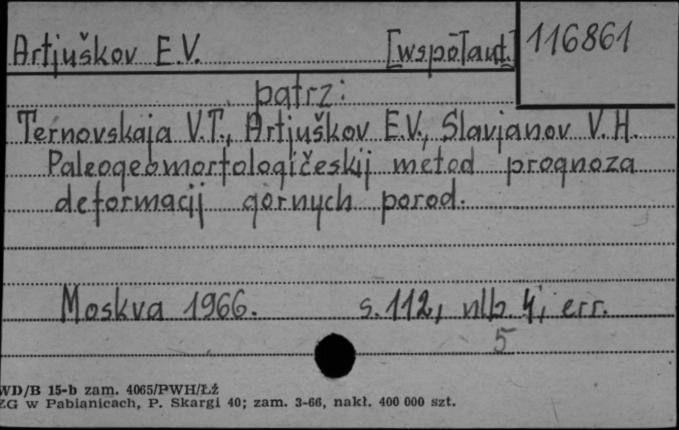 Artjuškov E.V. [współaut.] 116861
patrz:
Ternovskaja V.T., Artjuškov E.V., Slavjanov V.H.
Paleogeomorfologičeskij metod prognoza
deformacij gornych porod.
Moskva 1966. s. 112, nlb. 4, err.
5
WD/B 15-b zam. 4065/PWH/Łź
ZG w Pabianicach, P. Skargi 40; zam. 3-66, nakł. 400 000 szt.